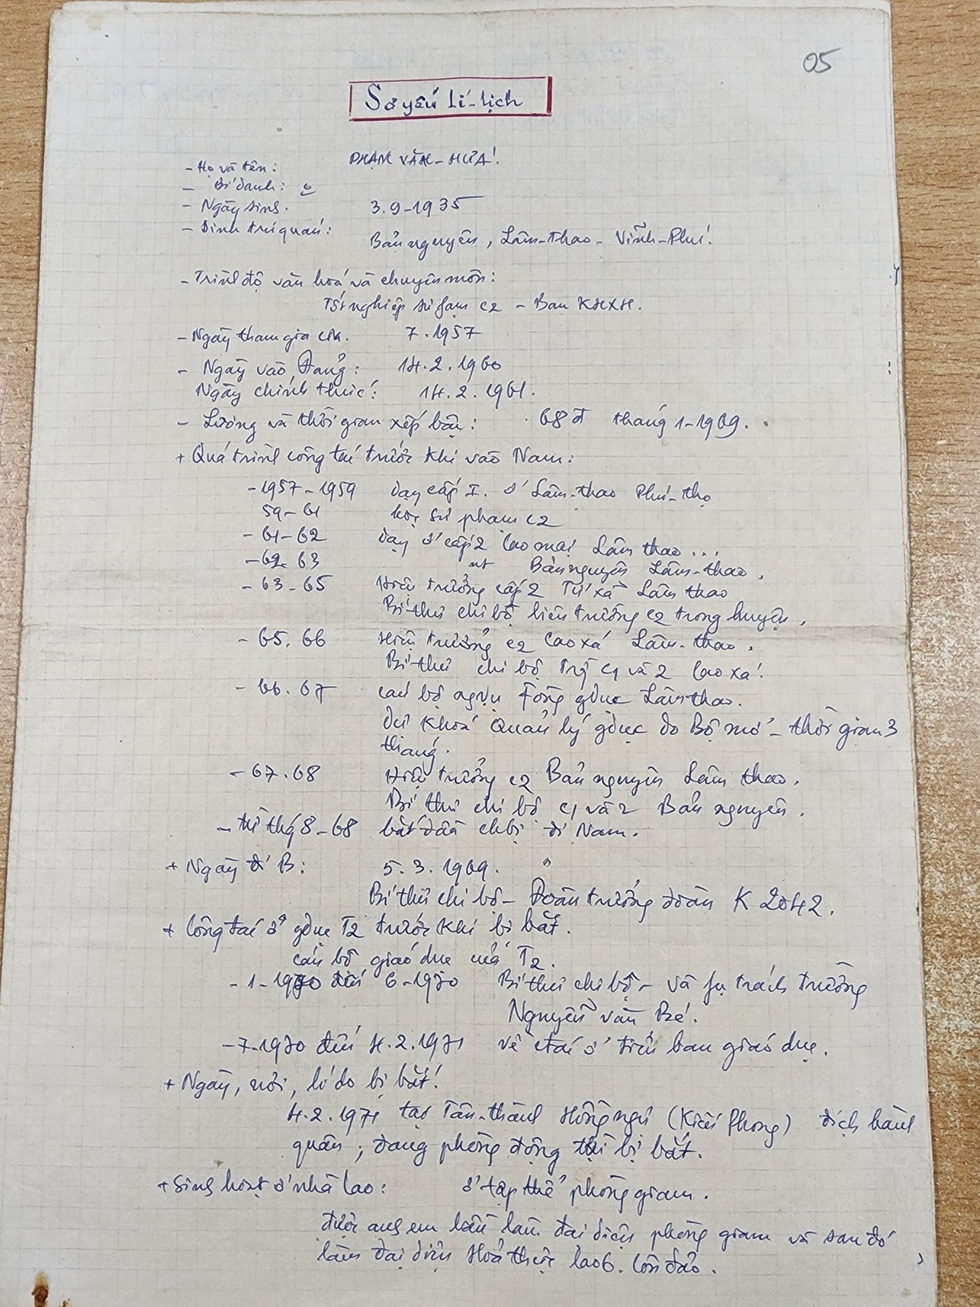 05
Sơ yếu lí-lịch
- Họ và tên: PHẠM VĂN-HỨA.
- Bí danh: 0
- Ngày sinh. 3.9-1935
- Sinh trú quán: Bản nguyên, Lâm-Thao - Vĩnh-Phú.
- Trình độ văn hoá và chuyên môn:
Tốt nghiệp sư fạm c2 - Ban KHXH.
- Ngày tham gia CM. 7.1957
- Ngày vào Đảng: 14.2.1960
Ngày chính thức: 14.2.1961.
- Lương và thời gian xếp bậc: 68đ tháng 1-1969.
+ Quá trình công tác trước khi vào Nam:
- 1957-1959 dạy cấp I. ở Lâm-thao Phú-thọ
59-61 học sư phạm c2
- 61-62 dạy ở cấp 2 Cao mại Lâm thao...
- 62. 63 nt Bản nguyên Lâm-thao.
- 63-65 Hiệu trưởng cấp 2 Tứ xã Lâm thao
Bí thư chi bộ liên trường c2 trong huyện.
- 65. 66 Hiệu trưởng c2 Cao xá Lâm-thao.
Bí thư chi bộ Trg c1 và 2 Cao xá.
- 66. 67 cán bộ ngvụ Fòng gdục Lâmthao.
dự khoá Quản lý gdục do Bộ mở - thời gian 3
tháng.
- 67.68 Hiệu trưởng c2 Bản nguyên Lâm thao.
Bí thư chi bộ c1 và 2 Bản nguyên.
- từ thg 8-68 bắt đầu chbị đi Nam.
+ Ngày đi B: 5.3.1969.
Bí thư chi bộ - Đoàn trưởng đoàn K 2042.
+ Công tác ở gdục T2 trước khi bị bắt.
cán bộ giáo dục của T2.
- 1-1970 đến 6-1970 Bí thư chi bộ - và fụ trách trường
Nguyễn văn Bé.
- 7-1970 đến 4.2.1971 về ctác ở tiểu ban giáo dục.
+ Ngày, nơi, lí do bị bắt:
4.2.1971 tại Tân-thành Hồng ngự (Kiến Phong) địch hành
quân; đang phòng động thì bị bắt.
+ Sinh hoạt ở nhà lao: ở tập thể phòng giam.
được anh em bầu làm đại diện phòng giam và sau đó
làm đại diện lao 6. Côn đảo.